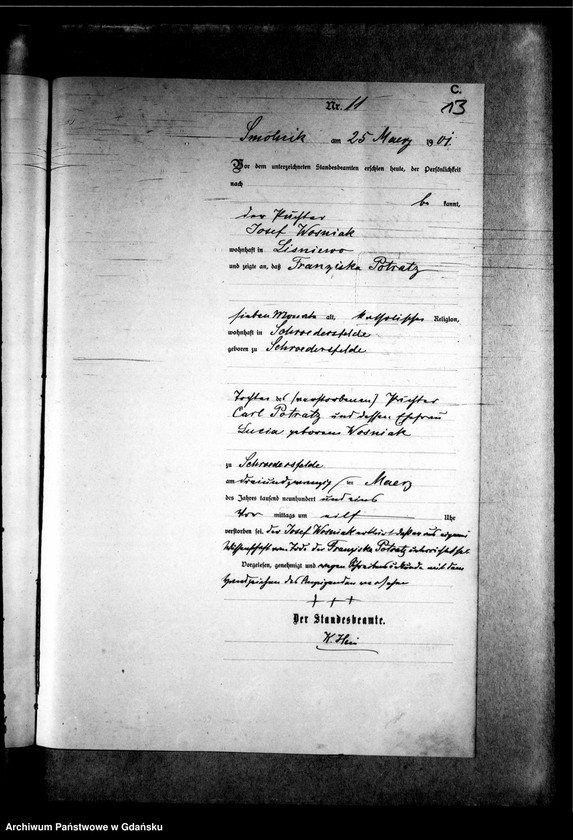 C.
Nr. 11
13
Smolnik am 25 Maerz 1901.
Vor dem unterzeichneten Standesbeamten erschien heute, der Persönlichkeit
nach
be kannt,
der Pächter
Josef Wosniak
wohnhaft in Lisniewo
und zeigte an, daß Franziska Potratz
sieben Monate alt, katholischer Religion,
wohnhaft in Schroedersfelde
geboren zu Schroedersfelde
Tochter des (verstorbenen) Pächter
Carl Potratz und dessen Ehefrau
Lucia geborenen Wosniak
zu Schroedersfelde
am dreiundzwanzig ten Maerz
des Jahres tausend neunhundert und eins
Vor mittags um eilf Uhr
verstorben sei. Der Josef Wosniak erklärt daß er aus eigener
Wissenschaft vom Tode der Franziska Potratz unterrichtet sei
Vorgelesen, genehmigt und wegen Schreibensunkunde mit dem
Handzeichen des Anzeigenden versehen
+ + +
Der Standesbeamte.
K. Hein
Archiwum Państwowe w Gdańsku